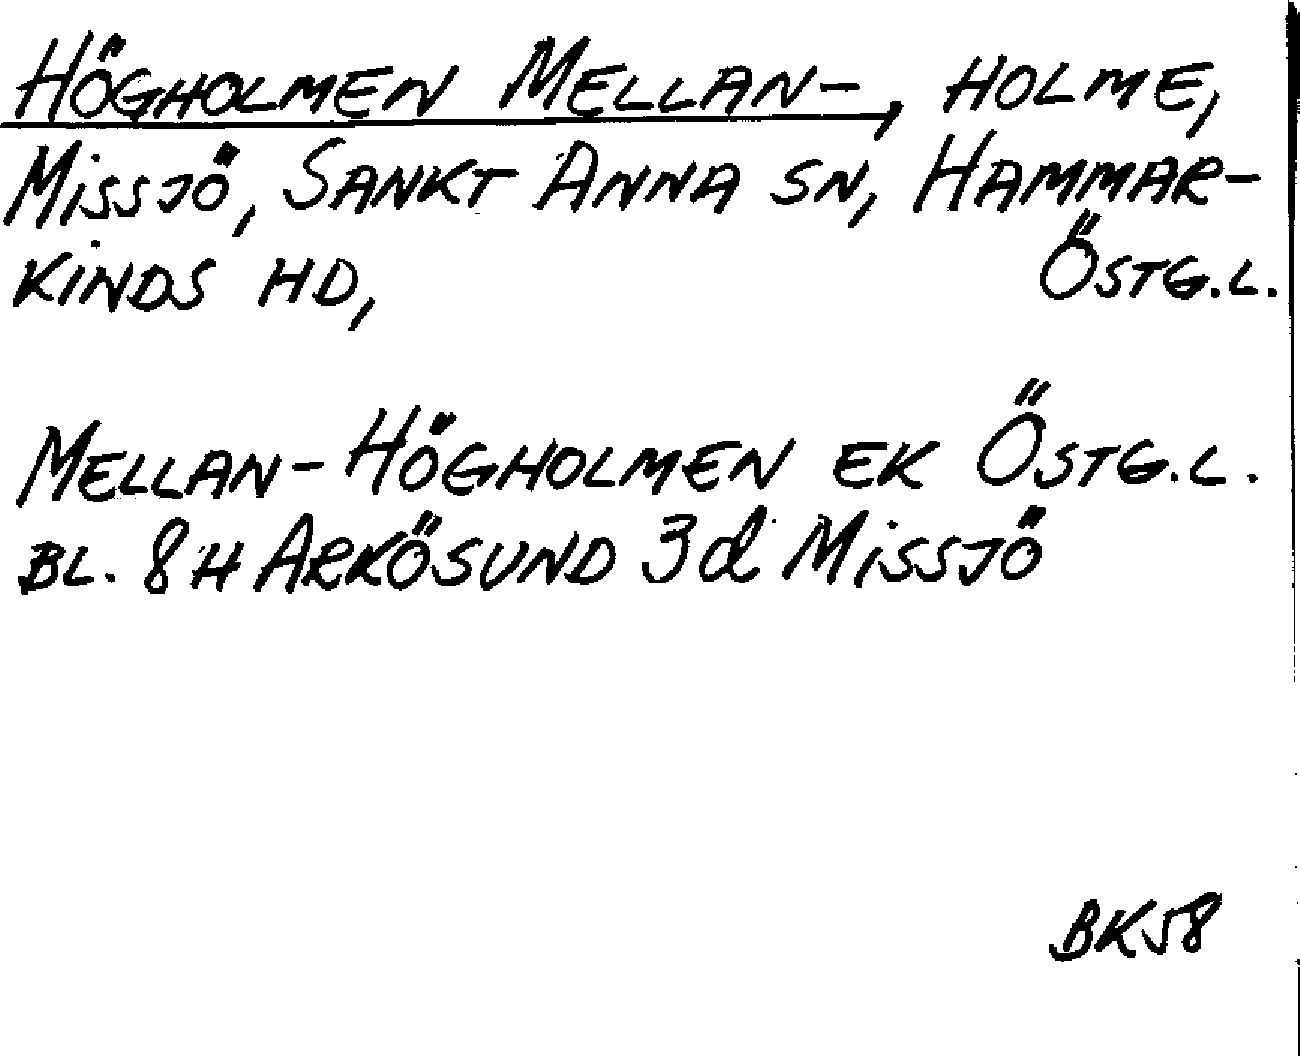 HÖGHOLMEN MELLAN-, HOLME,
MISSJÖ, SANKT ANNA SN, HAMMAR-
KINDS HD, ÖSTG.L.
MELLAN-HÖGHOLMEN EK ÖSTG.L.
BL. 8H ARKÖSUND 3d MISSJÖ
BK58